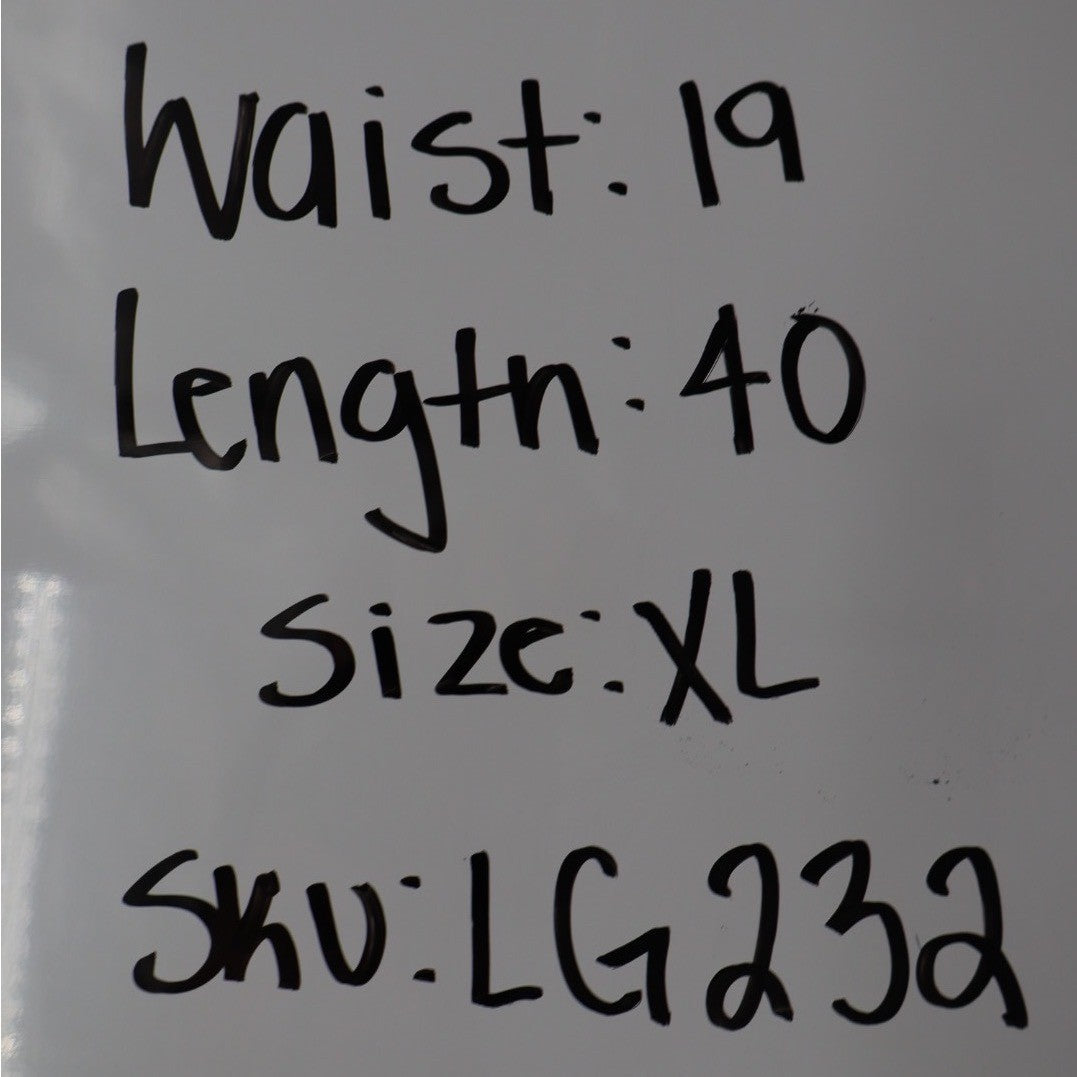 Waist: 19
Length: 40
Size: XL
SKU: LG232